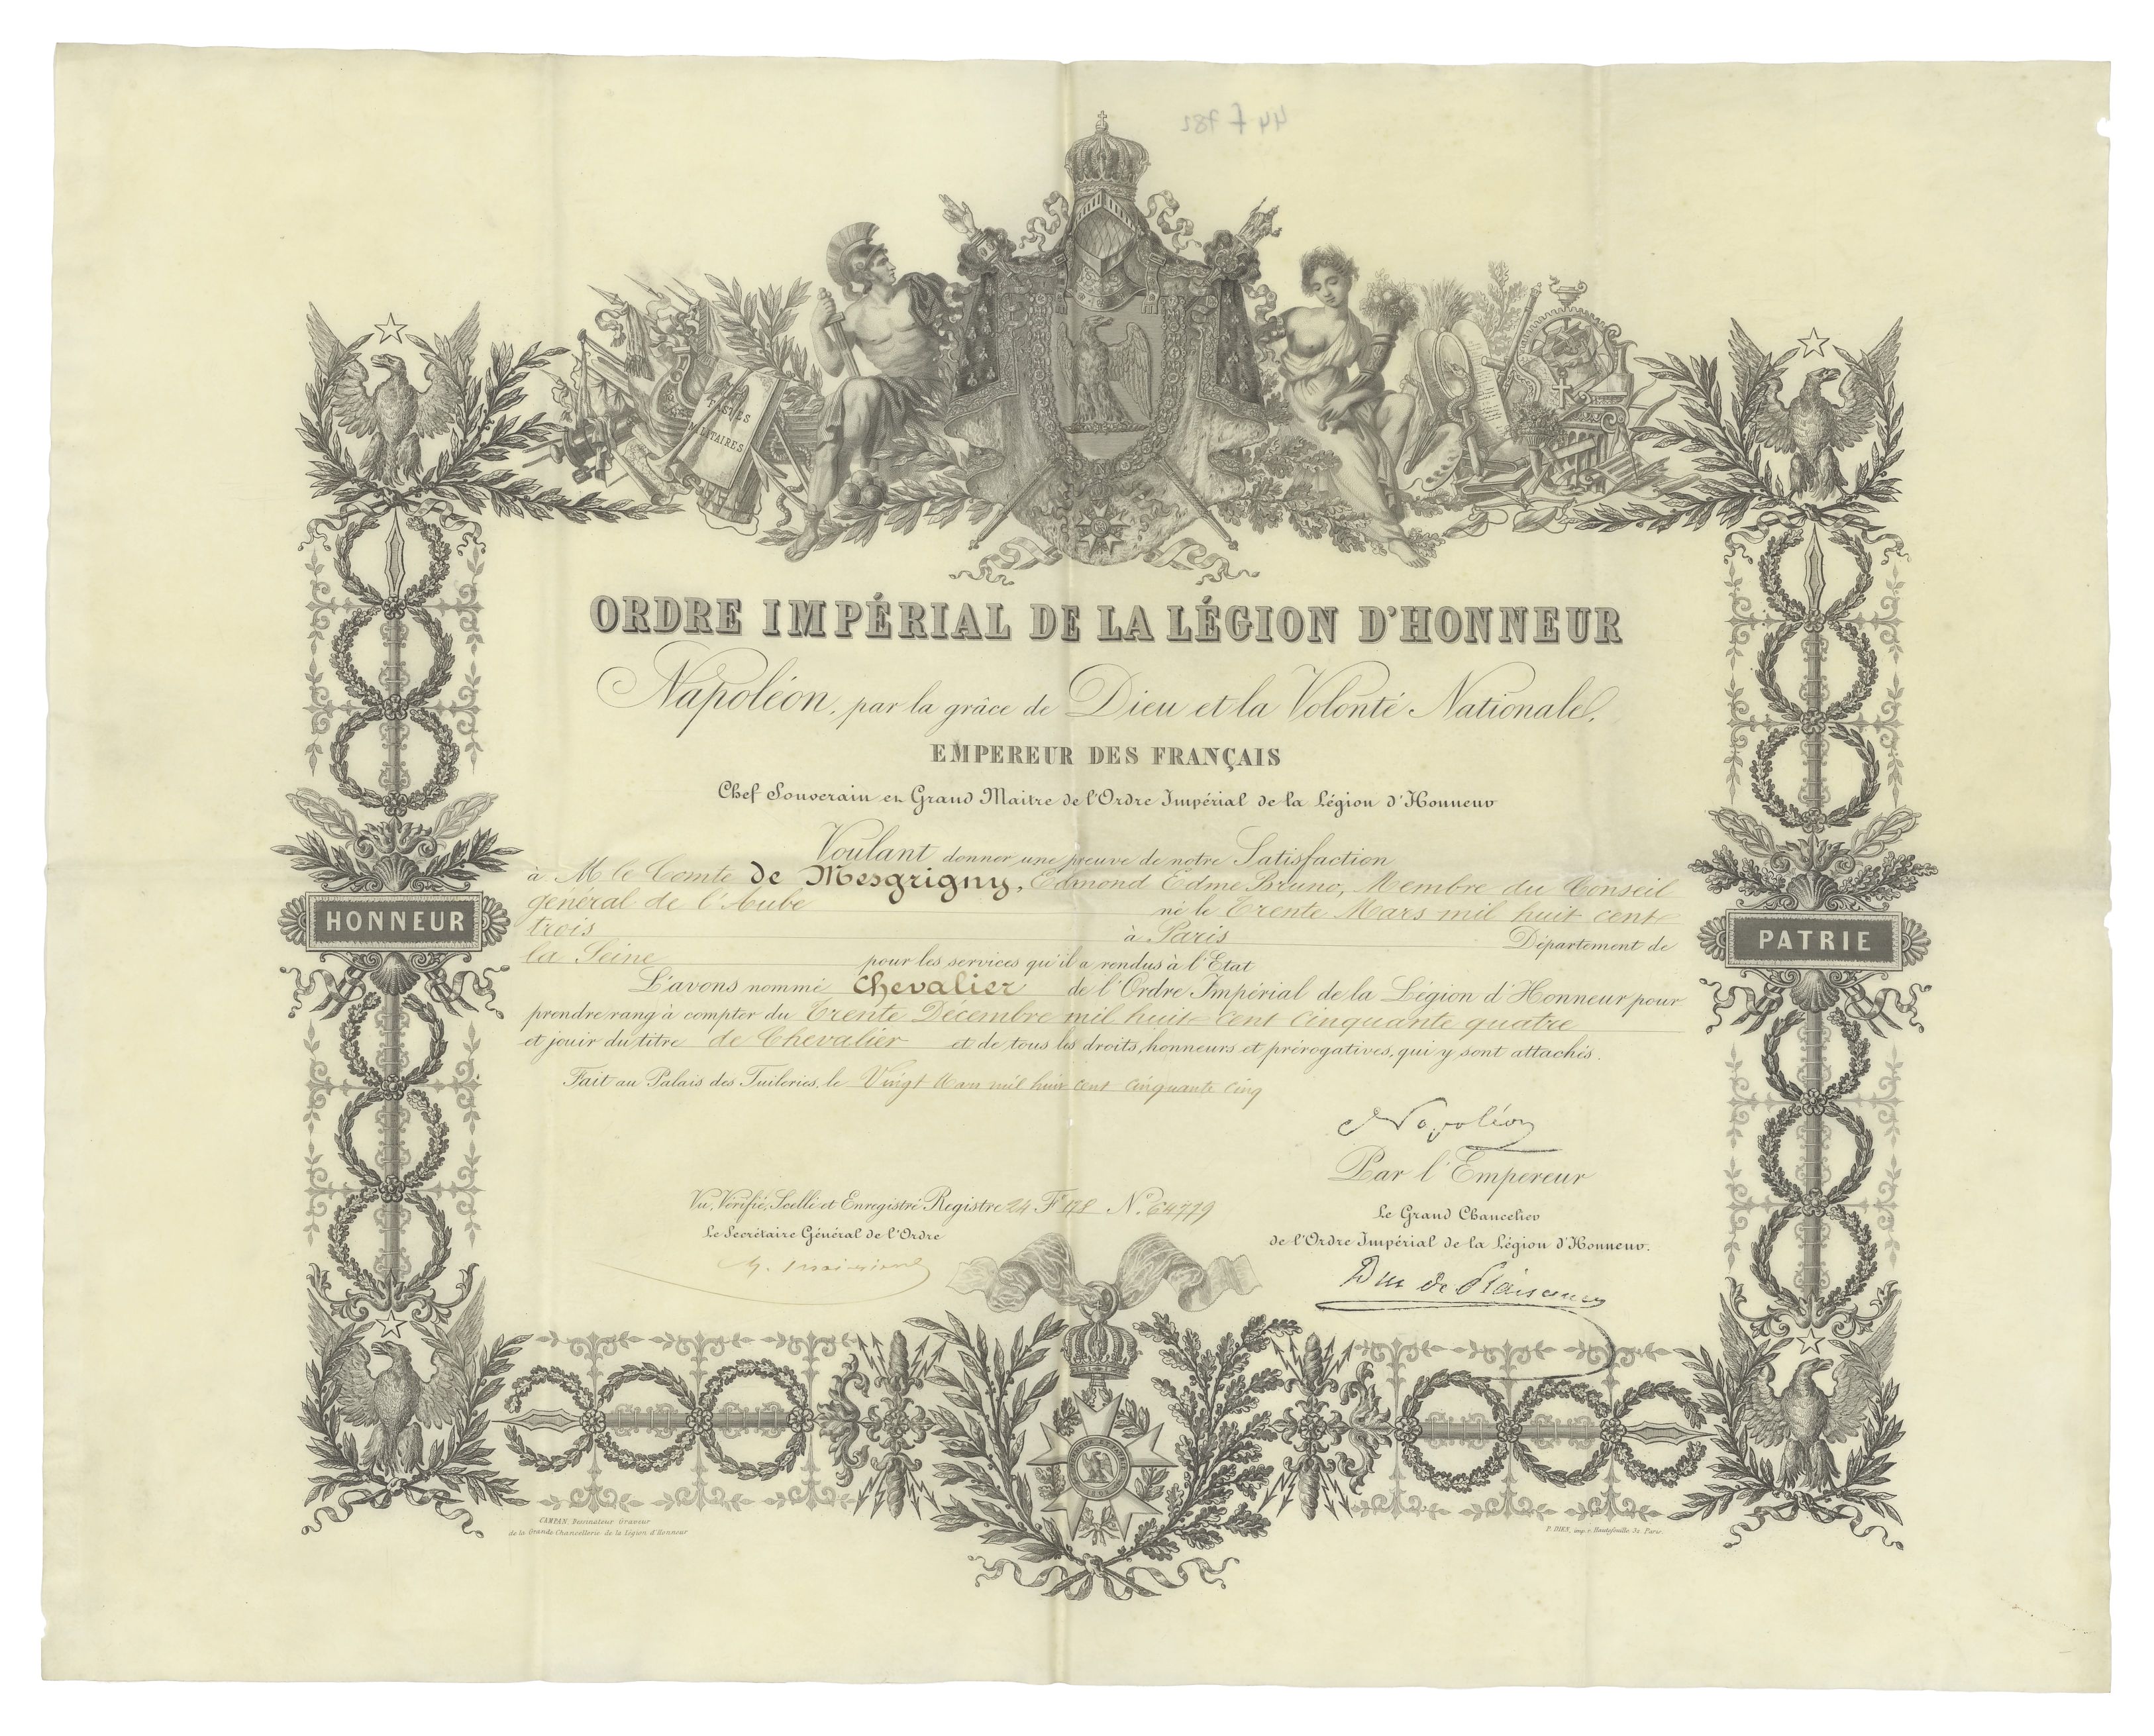 44 F 782
FASTES
MILITAIRES
ORDRE IMPÉRIAL DE LA LÉGION D'HONNEUR
Napoléon, par la grâce de Dieu et la Volonté Nationale,
EMPEREUR DES FRANÇAIS
Chef Souverain et Grand Maitre de l'Ordre Impérial de la Légion d'Honneur
Voulant donner une preuve de notre Satisfaction
à M. le Comte de Mesgrigny, Edmond Edme Bruno, Membre du Conseil
général de l'Aube né le Trente Mars mil huit cent
trois à Paris Département de
la Seine pour les services qu'il a rendus à l'Etat
L'avons nommé Chevalier de l'Ordre Impérial de la Légion d'Honneur pour
prendre rang à compter du Trente Décembre mil huit cent cinquante quatre
et jouir du titre de Chevalier et de tous les droits, honneurs et prérogatives, qui y sont attachés.
Fait au Palais des Tuileries, le Vingt Mars mil huit cent cinquante cinq
HONNEUR
PATRIE
Napoléon
Par l'Empereur
Vu, Vérifié, Scellé et Enregistré Registre 24 F° 178 N° 64779
Le Grand Chancelier
Le Secrétaire Général de l'Ordre
de l'Ordre Impérial de la Légion d'Honneur.
Duc de Plaisance
CAMPAN, Dessinateur Graveur
de la Grande Chancellerie de la Légion d'Honneur
P. DIEN, imp. r. Hautefeuille 32, Paris.